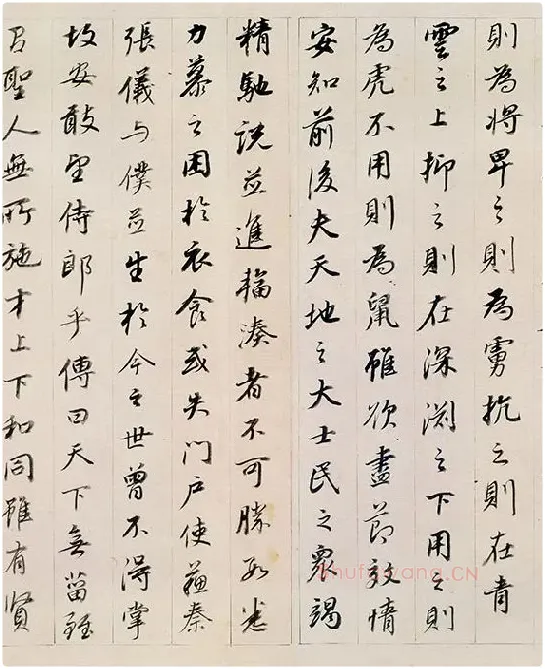 則為將卑之則為虜抗之則在青
雲之上抑之則在深淵之下用之則
為虎不用則為鼠雖欲盡節效情
安知前後夫天地之大士民之衆竭
精馳說並進輻湊者不可勝數悉
力慕之困於衣食或失門戶使蘇秦
張儀与僕並生於今之世曾不得掌
故安敢望侍郎乎傳曰天下無菑雖
有聖人無所施才上下和同雖有賢
shufawang.CN